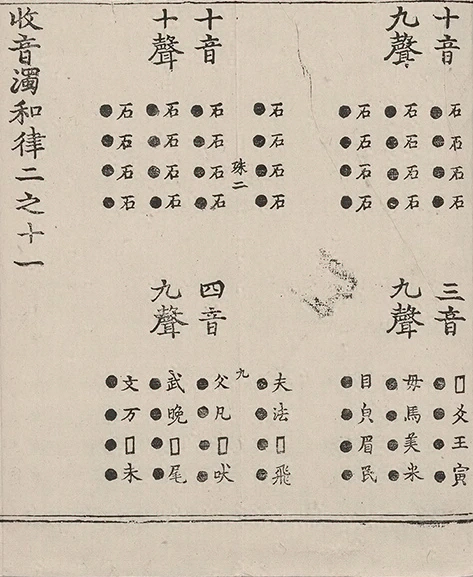 十音●石●石●石●石
三音●□●爻●王●寅
九聲●石●石●石●石
九聲●母●馬●美●米
●石●石●石●石
●目●皃●眉●民
●石●石●石●石
●夫●法●□●飛
珠二
九
十音●石●石●石●石
四音●父●凡●□●吠
十聲●石●石●石●石
九聲●武●晚●□●尾
●石●石●石●石
●文●万●□●未
收音濁和律二之十一